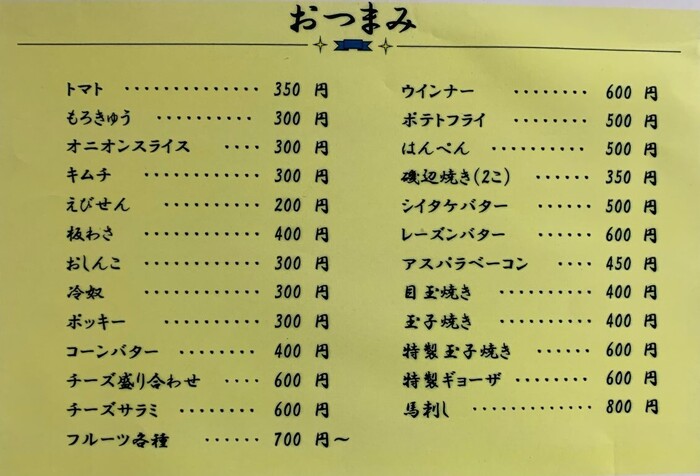 おつまみ
トマト ・・・・・・・・・・・・・・ 350 円
もろきゅう ・・・・・・・・・・ 300 円
オニオンスライス ・・・・ 300 円
キムチ ・・・・・・・・・・・・ 300 円
えびせん ・・・・・・・・・・・ 200 円
板わさ ・・・・・・・・・・・・ 400 円
おしんこ ・・・・・・・・・・・・ 300 円
冷奴 ・・・・・・・・・・・・ 300 円
ポッキー ・・・・・・・・・・・ 300 円
コーンバター ・・・・・・・・ 400 円
チーズ盛り合わせ ・・・・ 600 円
チーズサラミ ・・・・・・・・ 600 円
フルーツ各種 ・・・・・・ 700 円～
ウインナー ・・・・・・・・ 600 円
ポテトフライ ・・・・・・・ 500 円
はんぺん ・・・・・・・・・・ 500 円
磯辺焼き(2こ) ・・・・・・ 350 円
シイタケバター ・・・・・・ 500 円
レーズンバター ・・・・・・ 600 円
アスパラベーコン ・・・・ 450 円
目玉焼き ・・・・・・・・・・ 400 円
玉子焼き ・・・・・・・・・・ 400 円
特製玉子焼き ・・・・・・ 600 円
特製ギョーザ ・・・・・・・・ 600 円
馬刺し ・・・・・・・・・・・・・ 800 円